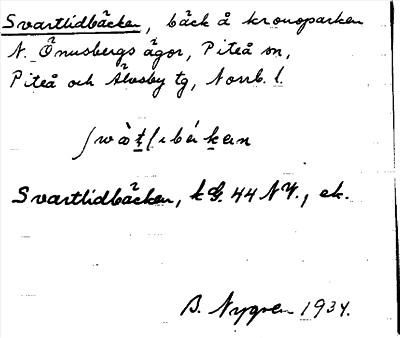 Svartlidbäcken, bäck å kronoparken
N. Önusbergs ägor, Piteå sn,
Piteå och Älvsby tg, Norrb. l.
Svartlidbäcken, k G. 44 NV., ek.
B. Nygren 1934.